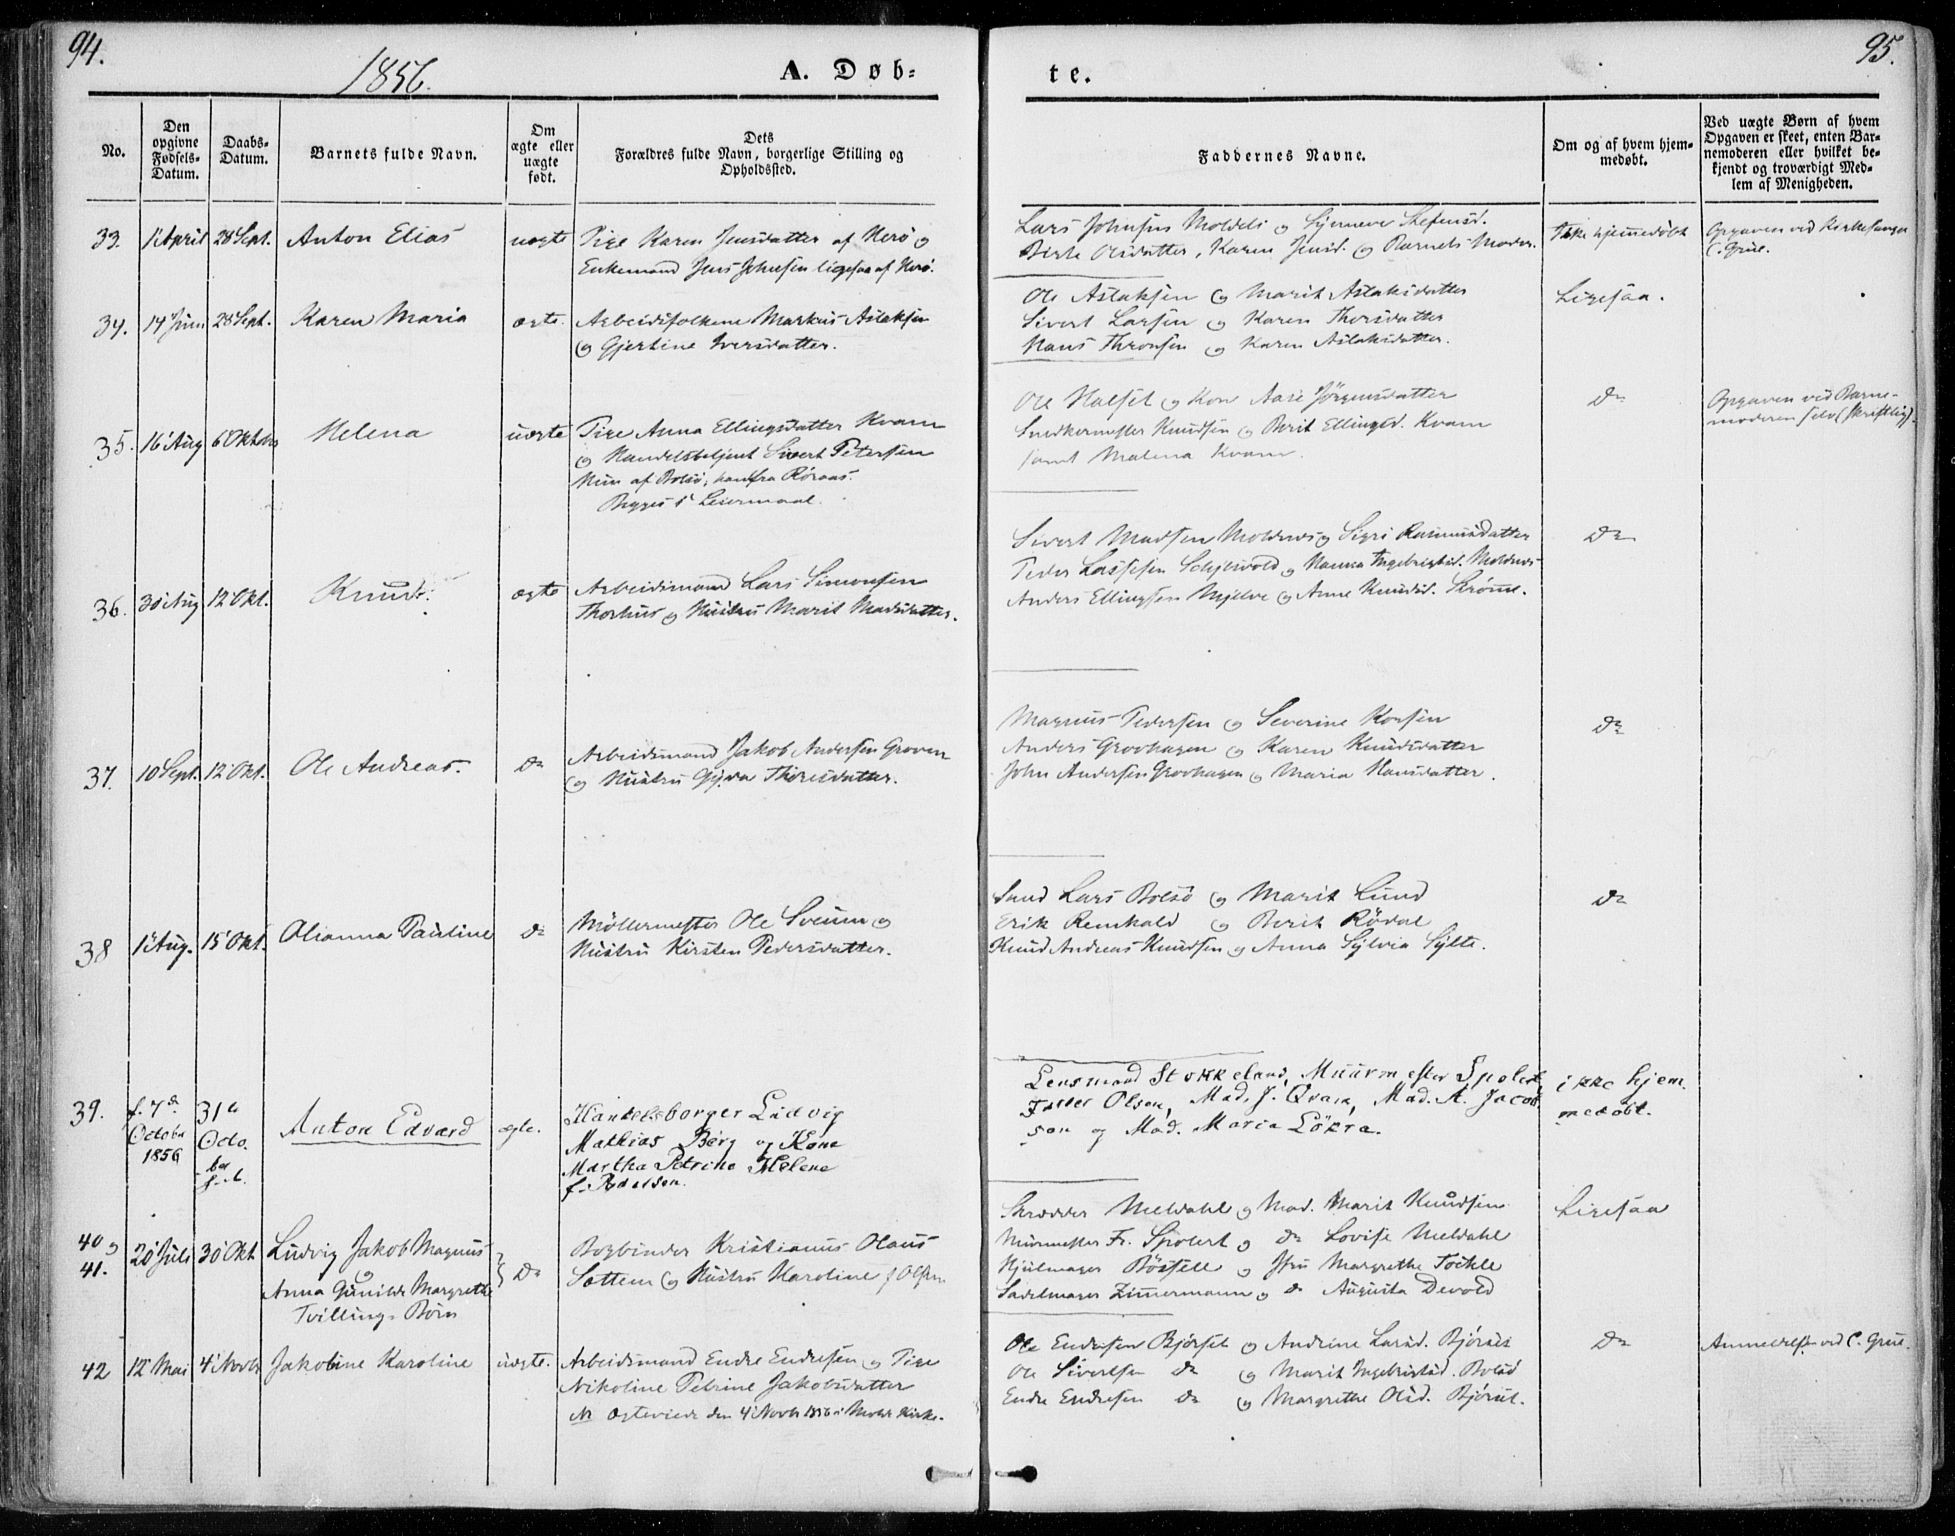 94.
1856.
A. Døb-
te.
95.
No.
Den
opgivne
Fødsels-
Datum.
Daabs-
Datum.
Barnets fulde Navn.
Om
ægte eller
uægte
født.
Dets
Forældres fulde Navn, borgerlige Stilling og
Opholdssted.
Faddernes Navne.
Om og af hvem hjem-
medøbt.
Ved uægte Børn af hvem
Opgaven er skeet, enten Bar-
nemoderen eller hvilket be-
kjendt og troværdigt Med-
lem af Menigheden.
33. 1 April 28 Sept. Anton Elias uægte Pige Karen Jensdatter af Herö og
Enkemand Jens Johnsen ligesaa af Herö.
Lars Johnsen Moldeli og Synneve Stefensd.
Berte Olsdatter, Karen Jensd. og Barnets Moder.
Ikke hjemmedøbt
Opgaven ved Kirkesanger
C. Grue.
34. 14 Juni 28 Sept. Karen Maria ægte. Arbeidsfolkene Markus Aslaksen
og Gjertine Iversdatter.
Ole Aslaksen og Marit Aslaksdatter
Sivert Larsen og Karen Thorsdatter
Hans Thronsen og Karen Aslaksdatter.
Ligesaa.
35. 16 Aug 6 Oktbr Helena uægte Pige Anna Ellingsdatter Kvam
og Handelsbetjent Sivert Petersen
Hun af Bolsö, han fra Röraas.
Begges 1ste Leiermaal.
Ole Halset og Kone Aase Jörgensdatter
Snedkermester Knudsen og Berit Ellingsd. Kvam
samt Malena Kvam.
Do
Opgaven ved Barne-
moderen selv (skriftlig).
36. 30 Aug 12 Okt. Knud. ægte Arbeidsmand Lars Simonsen
Thorhus og Hustru Marit Madsdatter.
Sivert Madsen Moldenes og Sigri Rasmusdatter
Peder Lassesen Schjevold og Hanna Ingebrigtsd. Moldnes
Anders Ellingsen Mjelve og Anne Knudsd. Strömme.
Do
37. 10 Sept. 12 Okt. Ole Andreas. Do Arbeidsmand Jakob Andersen Groven
og Hustru Thoresdatter.
Magnus Pedersen og Severine
Anders Grovhagen og Karen Knudsdatter
John Andersen Grovhagen og Maria Hansdatter.
Do
38 1 Aug. 15 Okt. Olianna Pauline Do Möllermester Ole Sveum og
Hustru Kirsten Pedersdatter.
Lars Bolsö og Marit Lund
Erik Remhald og Berit Rödal
Knud Andreas Knudsen og Anna Sylvia Sylte.
Do
39. f. 7de
October
1856
31te
Octo-
ber
s. A.
Anton Edvard ægte. Handelsborger Ludvig
Mathias Berg og Kone
Martha Petrine Helene
f. Pedersen.
Lensmand Stokkeland, Muurmester Spolert,
Olsen, Mad. J. Qvam, Mad. A. Jacob-
sen og Mad. Maria Lökra.
ikke hjem-
medøbt.
40 og
41. 20 Juli 30 Okt Ludvig Jakob Magnus
og
Anna Gunilde Margrethe
Tvillings Børn
Do
Bogbinder Kristianus Olaus
Sættem og Hustru Karoline f. Olsen
Skrædder Meldahl og Mad. Marit Knudsen
Murmester Fr. Spolert og Do Lovise Meldahl
Hjulmager og Fru Margrethe
Sadelmager Zimmermann og Do Augusta Devold
Ligesaa
42 12 Mai 4 Novbr Jakobine Karoline uægte. Arbeidsmand Endre Endresen og Pige
Nikoline Petrine Jakobsdatter
NB Ægteviede den 4 Novbr 1856 i Molde Kirke.
Ole Endresen Bjørset og Andrine Larsd. Bjørset
Ole Sivertsen Do og Marit Ingebrigtsd. Bolsö
Endre Endresen Do og Margrethe Olsd. Bjørset.
Do
Anmeldelsen ved C. Grue.